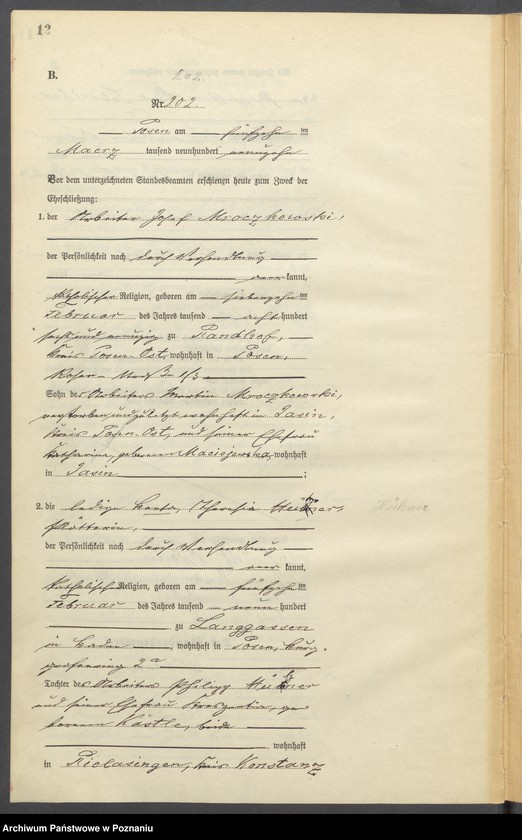 12
B. 202.
Nr. 202.
Posen am fünfzehn ten
Maerz tausend neunhundert neunzehn
Vor dem unterzeichneten Standesbeamten erschienen heute zum Zweck der
Eheschließung:
1. der Arbeiter Josef Mroczkowski,
der Persönlichkeit nach durch Verhandlung
aner kannt,
katholischer Religion, geboren am siebenzehn ten
Februar des Jahres tausend acht hundert
sechs und neunzig zu Randhof,
Kreis Posen-Ost, wohnhaft in Posen,
1/3
Sohn des Arbeiters Martin Mroczkowski,
verstorben und zuletzt wohnhaft in Jasin,
Kreis Posen-Ost, und seiner Ehefrau
Katharina, geborenen Maciejewska, wohnhaft
in Jasin ;
2. die ledige Berta, Theresia
Plätterin,
der Persönlichkeit nach durch Verhandlung
aner kannt,
katholischer Religion, geboren am fünfzehn ten
Februar des Jahres tausend neun hundert
zu Langgassen
in Baden, wohnhaft in Posen, Burg-
grafenring 2a
Tochter des Arbeiters Philipp
und seiner Ehefrau Kreszentia, ge-
borenen Kästle, beide
wohnhaft
in Rielasingen, Kreis Konstanz
Archiwum Państwowe w Poznaniu